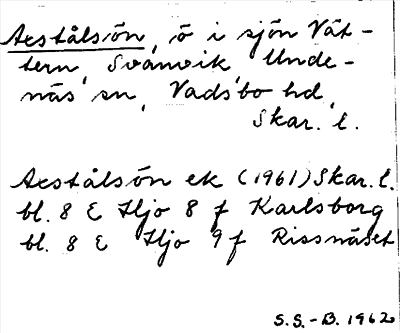 Axstålsön, ö i sjön Vät-
tern, Svanvik, Unde-
näs sn, Vadsbo hd,
Skar. l.
Axstålsön ek (1961) Skar. l.
bl. 8 E Hjo 8 f Karlsborg
bl. 8 E Hjo 9 f Rissnäset
S.S.-B. 1962